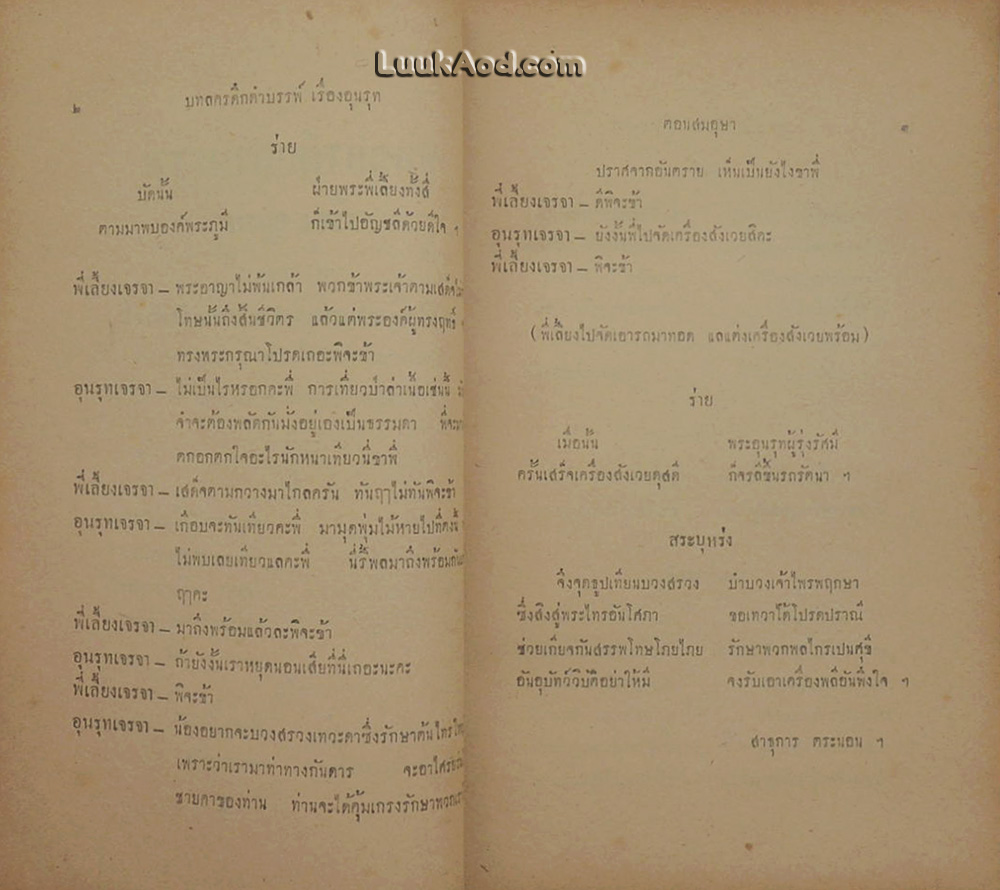 LuukAod.com
๒
บทลครดึกดำบรรพ์ เรื่องอุนรุท
ร่าย
บัดนั้น ฝ่ายพระพี่เลี้ยงทั้งสี่
ตามมาพบองค์พระภูมี ก็เข้าไปอัญชลีด้วยดีใจ ฯ
พี่เลี้ยงเจรจา – พระอาญาไม่พ้นเกล้า พวกข้าพระเจ้าตามเสด็จ
โทษนั้นถึงสิ้นชีวิตร แล้วแต่พระองค์ผู้ทรงฤทธิ์
ทรงพระกรุณาโปรดเถอะพิจะข้า
อุนรุทเจรจา – ไม่เป็นไรหรอกคะพี่ การเที่ยวป่าล่าเนื้อเช่นนี้
จำจะต้องพลัดกันมั่งอยู่เองเป็นธรรมดา พี่จะ
ตกอกตกใจอะไรนักหนาเทียวนี่ขาพี่
พี่เลี้ยงเจรจา – เสด็จตามกวางมาไกลครัน ทันฤๅไม่ทันพิจะข้า
อุนรุทเจรจา – เกือบจะทันเทียวคะพี่ มามุดพุ่มไม้หายไปที่ตรงนี้
ไม่พบเลยเทียวแลคะพี่ นี่รี้พลมาถึงพร้อมกัน
ฤๅคะ
พี่เลี้ยงเจรจา – มาถึงพร้อมแล้วละพิจะข้า
อุนรุทเจรจา – ถ้ายังงั้นเราหยุดนอนเสียที่นี่เถอะนะคะ
พี่เลี้ยงเจรจา – พิจะข้า
อุนรุทเจรจา – น้องอยากจะบวงสรวงเทวะดาซึ่งรักษาต้นไทร
เพราะว่าเรามาท่าทางกันดาร จะอาไศรย
ชายคาของท่าน ท่านจะได้คุ้มเกรงรักษาพวกเรา
ตอนสมอุษา
๓
ปราศจากอันตราย เห็นเป็นยังไงขาพี่
พี่เลี้ยงเจรจา – ดีพิจะข้า
อุนรุทเจรจา – ยังงั้นพี่ไปจัดเครื่องสังเวยสิคะ
พี่เลี้ยงเจรจา – พิจะข้า
(พี่เลี้ยงไปจัดเอารถมาทอด แลแต่งเครื่องสังเวยพร้อม)
ร่าย
เมื่อนั้น พระอุนรุทผู้รุ่งรัศมี
ครั้นเสร็จเครื่องสังเวยดุสดี ก็จรลีขึ้นรถรัตน่า ฯ
สระบุหร่ง
จึ่งจุดธูปเทียนบวงสรวง บำบวงเจ้าไพรพฤกษา
ซึ่งสิงสู่พระไทรอันโสภา ขอเทวาได้โปรดปราณี
ช่วยเกียจกันสรรพโทษโภยไภย รักษาพวกพลไกรเปนศุขี
อันอุบัทว์วิบัติอย่าให้มี จงรับเอาเครื่องพลีอันพึงใจ ฯ
สาธุการ ตระนอน ฯ